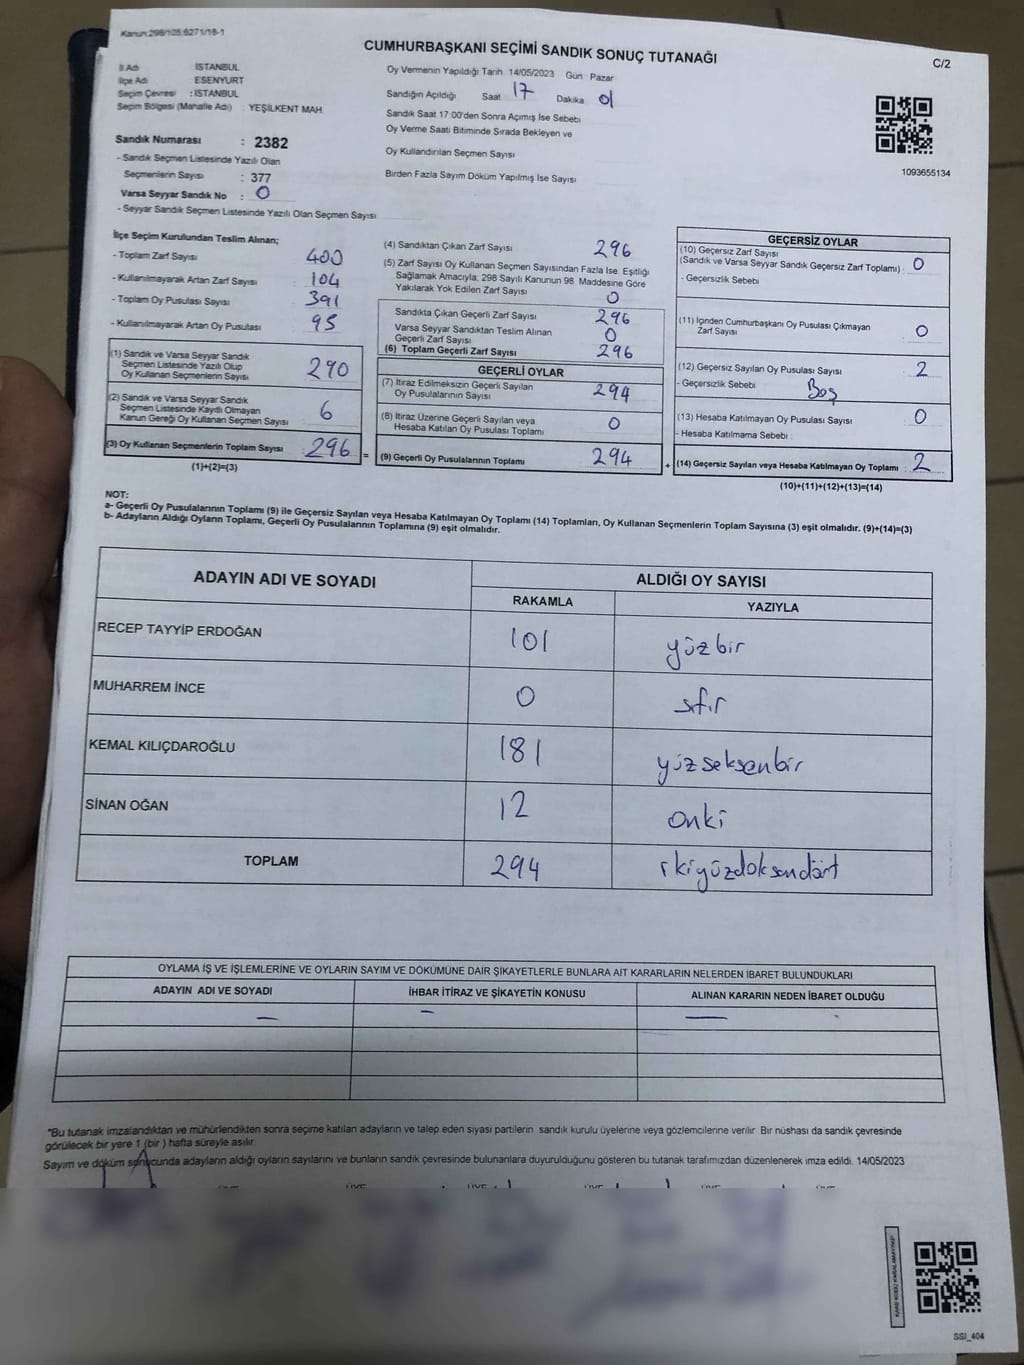 Kanun:298/105;6271/18-1
CUMHURBAŞKANI SEÇİMİ SANDIK SONUÇ TUTANAĞI
C/2
İl Adı İSTANBUL
İlçe Adı ESENYURT
Seçim Çevresi : İSTANBUL
Seçim Bölgesi (Mahalle Adı) : YEŞİLKENT MAH.
Oy Vermenin Yapıldığı Tarih 14/05/2023 Gün : Pazar
Sandığın Açıldığı Saat 17 Dakika 01
Sandık Saat 17:00'den Sonra Açımış İse Sebebi
Oy Verme Saati Bitiminde Sırada Bekleyen ve
Oy Kullandırılan Seçmen Sayısı
Birden Fazla Sayım Döküm Yapılmış İse Sayısı
1093655134
Sandık Numarası : 2382
- Sandık Seçmen Listesinde Yazılı Olan
Seçmenlerin Sayısı : 377
Varsa Seyyar Sandık No : 0
- Seyyar Sandık Seçmen Listesinde Yazılı Olan Seçmen Sayısı
İlçe Seçim Kurulundan Teslim Alınan;
- Toplam Zarf Sayısı 400
- Kullanılmayarak Artan Zarf Sayısı 104
- Toplam Oy Pusulası Sayısı 391
- Kullanılmayarak Artan Oy Pusulası 95
(1) Sandık ve Varsa Seyyar Sandık
Seçmen Listesinde Yazılı Olup
Oy Kullanan Seçmenlerin Sayısı 290
(2) Sandık ve Varsa Seyyar Sandık
Seçmen Listesinde Kayıtlı Olmayan
Kanun Gereği Oy Kullanan Seçmen Sayısı 6
(3) Oy Kullanan Seçmenlerin Toplam Sayısı 296
(1)+(2)=(3)
(4) Sandıktan Çıkan Zarf Sayısı 296
(5) Zarf Sayısı Oy Kullanan Seçmen Sayısından Fazla İse, Eşitliği
Sağlamak Amacıyla; 298 Sayılı Kanunun 98. Maddesine Göre
Yakılarak Yok Edilen Zarf Sayısı 0
Sandıkta Çıkan Geçerli Zarf Sayısı 296
Varsa Seyyar Sandıktan Teslim Alınan
Geçerli Zarf Sayısı 0
(6) Toplam Geçerli Zarf Sayısı 296
GEÇERLİ OYLAR
(7) İtiraz Edilmeksizin Geçerli Sayılan
Oy Pusulalarının Sayısı 294
(8) İtiraz Üzerine Geçerli Sayılan veya
Hesaba Katılan Oy Pusulası Toplamı 0
= (9) Geçerli Oy Pusulalarının Toplamı 294
GEÇERSİZ OYLAR
(10) Geçersiz Zarf Sayısı
(Sandık ve Varsa Seyyar Sandık Geçersiz Zarf Toplamı) : 0
- Geçersizlik Sebebi
(11) İçinden Cumhurbaşkanı Oy Pusulası Çıkmayan
Zarf Sayısı 0
(12) Geçersiz Sayılan Oy Pusulası Sayısı 2
- Geçersizlik Sebebi Boş
(13) Hesaba Katılmayan Oy Pusulası Sayısı 0
- Hesaba Katılmama Sebebi :
+ (14) Geçersiz Sayılan veya Hesaba Katılmayan Oy Toplamı : 2
(10)+(11)+(12)+(13)=(14)
NOT:
a- Geçerli Oy Pusulalarının Toplamı (9) ile Geçersiz Sayılan veya Hesaba Katılmayan Oy Toplamı (14) Toplamları, Oy Kullanan Seçmenlerin Toplam Sayısına (3) eşit olmalıdır. (9)+(14)=(3)
b- Adayların Aldığı Oyların Toplamı, Geçerli Oy Pusulalarının Toplamına (9) eşit olmalıdır.
ADAYIN ADI VE SOYADI ALDIĞI OY SAYISI
RAKAMLA YAZIYLA
RECEP TAYYİP ERDOĞAN 101 yüzbir
MUHARREM İNCE 0 sıfır
KEMAL KILIÇDAROĞLU 181 yüzseksenbir
SİNAN OĞAN 12 onki
TOPLAM 294 ikiyüzdoksandört
OYLAMA İŞ VE İŞLEMLERİNE VE OYLARIN SAYIM VE DÖKÜMÜNE DAİR ŞİKAYETLERLE BUNLARA AİT KARARLARIN NELERDEN İBARET BULUNDUKLARI
ADAYIN ADI VE SOYADI İHBAR İTİRAZ VE ŞİKAYETİN KONUSU ALINAN KARARIN NEDEN İBARET OLDUĞU
— — —
*Bu tutanak imzalandıktan ve mühürlendikten sonra seçime katılan adayların ve talep eden siyasi partilerin sandık kurulu üyelerine veya gözlemcilerine verilir. Bir nüshası da sandık çevresinde
görülecek bir yere 1 (bir) hafta süreyle asılır.
Sayım ve döküm sonucunda adayların aldığı oyların sayılarını ve bunların sandık çevresinde bulunanlara duyurulduğunu gösteren bu tutanak tarafımızdan düzenlenerek imza edildi. 14/05/2023
SSİ_404